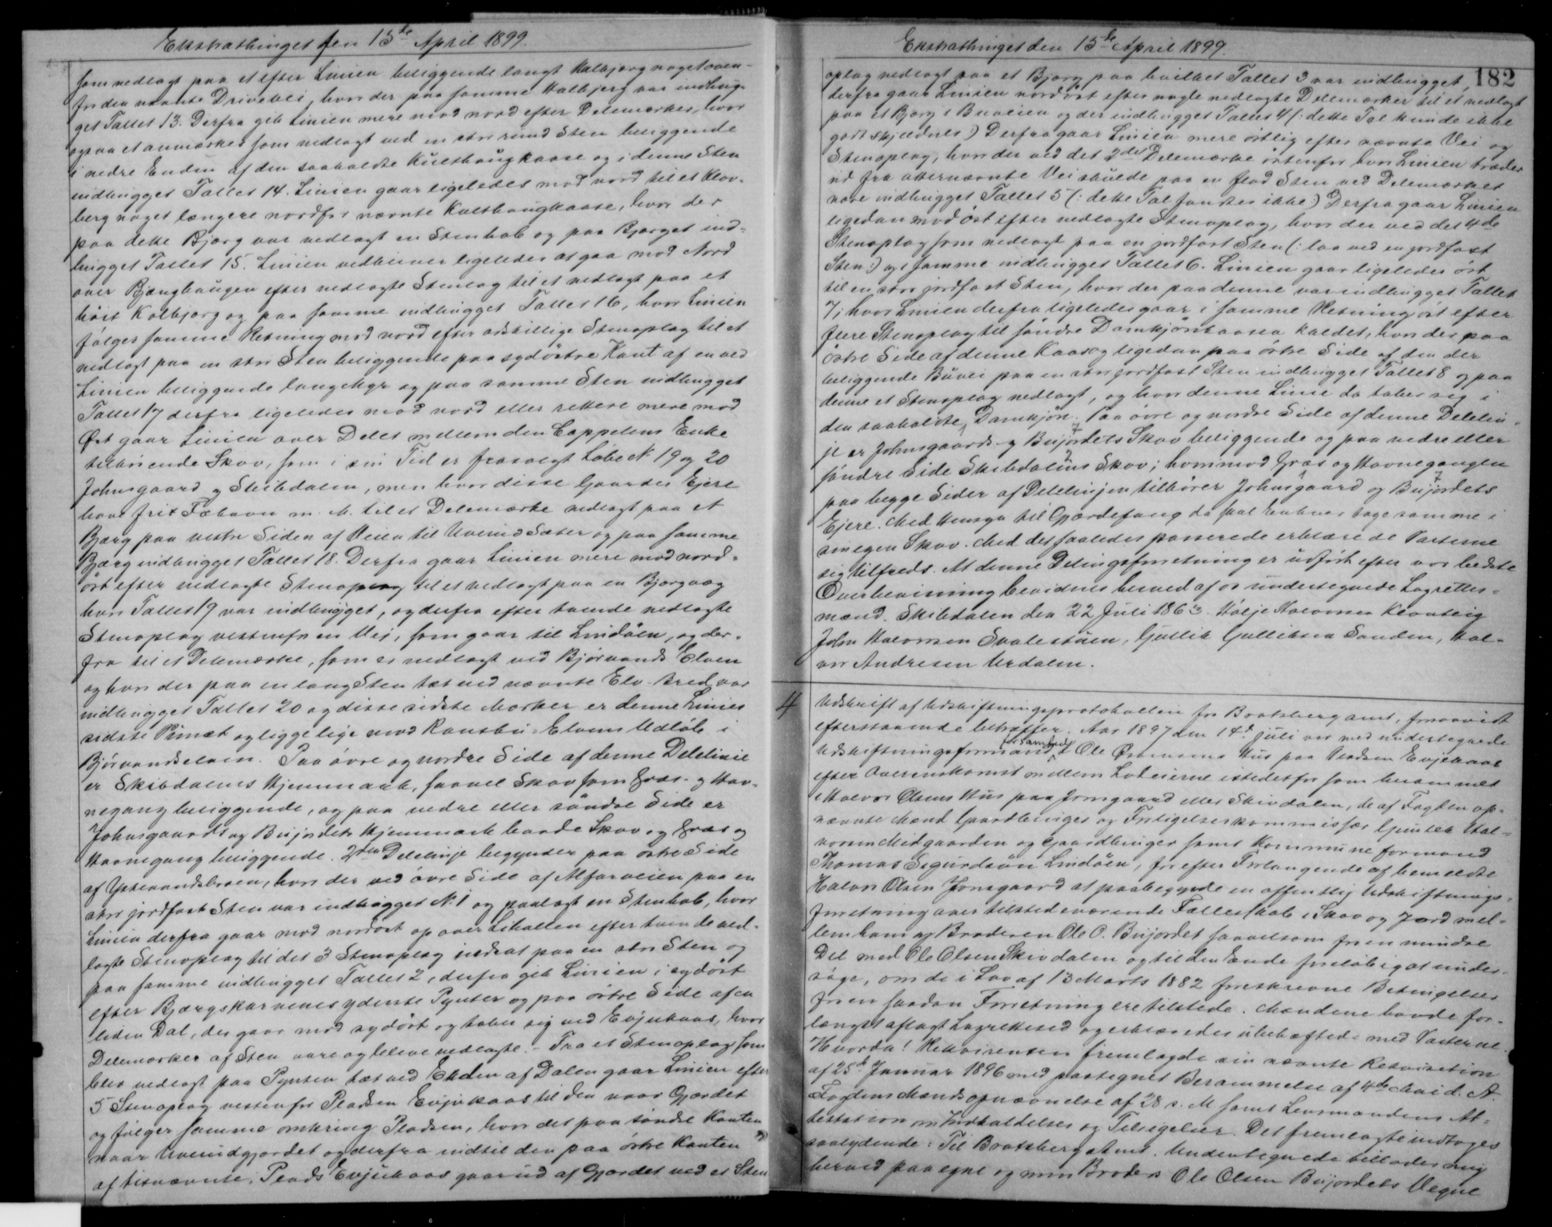 Extrathinget den 15de April 1899.
som nedlagt paa et efter Linien beliggende langt Kalbjerg noget oven-
for den nævnte Drivevei, hvor der paa samme Kalbjerg var indhug-
get Tallet 13. Derfra geb Linien mere mod nord efter Delemærker, hvor
ogsaa et anmærket som nedlagt ved en stor rund Sten beliggende
i nedre Enden af den saakaldte Kulthaugkaase og i denne Sten
indhugget Tallet 14. Linien gaar ligeledes mod nord til et Klov-
berg noget længere nordfor nævnte Kulthaugkaase, hvor der
paa dette Bjerg var nedlagt en Stenhob og paa Bjerget ind-
hugget Tallet 15. Linien vedbliver ligeledes at gaa mod Nord
over Bjønghaugen efter nedlagte Stenlag til et nedlagt paa et
höit Kolbjerg og paa samme indhugget Tallet 16, hvor Linien
fölger samme Retning mod nord efter adskillige Stenoplag til et
nedlagt paa en stor Sten beliggende paa sydöstre Kant af en ved
Linien beliggende langmyr og paa samme Sten indhugget
Tallet 17 derfra ligeledes mod nord eller rettere mere mod
Öst gaar Linien over Delet mellem den Cappelens Enke
tilhörende Skov, som i sin Tid er frasolgt Löbe N. 19 og 20
Johnsgaard og Skibdalen, men hvor disse Gaardes Ejere
have frit Fæhavn m. M. til et Delemærke nedlagt paa et
Bjærg paa vestre Siden af Veien til Uverud Sæter og paa samme
Bjærg indhugget Tallet 18. Derfra gaar Linien mere mod nord-
öst efter nedlagte Stenoplag til et nedlagt paa en Bjergvæg
hvor Tallet 19 var indhugget, og derfra efter tvende nedlagte
Stenoplag vestenfor en Vei, som gaar til Lindåsen, og der-
fra til et Delemærke, som er nedlagt ved Bjørvands Elven
og hvor der paa en lang Sten tæt ved nævnte Elv-Bred var
indhugget Tallet 20 og disse sidste Mærker er denne Linies
sidste Punkt og ligge lige mod Kansbu Elvens Udløb i
Bjørvandselven. Paa övre og nordre Side af denne Delelinie
er Skibdalens Hjemmark, saavel Skov som Græs- og Hav-
negang beliggende, og paa nedre eller söndre Side er
Johnsgaards og Bujordets Hjemmark baade Skov og Græs og
Havnegang beliggende. 2den Delelinje begynder paa östre Side
af Ypsevandsbroen, hvor der ved övre Side af Alfarveien paa en
stor jordfast Sten var indhugget N. 1 og paalagt en Stenhob, hvor
Linien derfra gaar mod nordost op over Lihallen efter tvende ned-
lagte Stenoplag til det 3 Stenoplag nedsat paa en stor Sten og
paa samme indhugget Tallet 2, derfra geb Linien i sydöst
efter Bjærgskarvenes yderste Pynter og paa östre Side af en
liden Dal, der gaar mod sydöst og taber sig ved Evjukaas, hvor
Delemærker af Sten vare og bleve nedlagte. - Fra et Stenoplag som
blev nedlagt paa Pynten tæt ved Enden af Dalen gaar Linien efter
5 Stenoplag vestenfor Pladsen Evjukaas til den naar Gjærdet
og fölger samme omkring Pladsen, hvor det paa söndre Kanten
naar Uverudgjærdet og derfra indtil den paa östre Kanten
af bisnævnte, Plads Evjukaas gaar ud af Gjærdet ved et Sten
Extrathinget den 15de April 1899.
182
oplag nedlagt paa et Bjerg paa hvilket Tallet 3 var indhugget,
derfra gaar Linien nordöst efter nogle nedlagte Delemærker til et nedlagt
paa et Bjerg i Buveien og der indhugget Tallet 4 (: dette Tal kunde ikke
godt skjelnes:) Derfra gaar Linien mere östlig efter nævnte Vei og
Stenoplag, hvor der ved det 2det Delemærke östenfor hvor Linien træder
ud fra abernævnte Vei skulde paa en flad Sten ved Delemærket
være indhugget Tallet 5 (: dette Tal fandtes ikke) Derfra gaar Linien
ligedan mod öst efter nedlagte Stenoplag, hvor der ved det 4de
Stenoplag som nedlagt paa en jordfast Sten (: laa ved en jordfast
Sten:) og i samme indhugget Tallet 6. Linien gaar ligeledes öst
til en stor jordfast Sten, hvor der paa denne var indhugget Tallet
7, hvor Linien derfra ligeledes gaar i samme Retning öst efter
flere Stenoplag til söndre Damkjönkaasen kaldet, hvor der paa
östre Side af denne Kaas og ligedan paa östre Side af den der
beliggende Buvei paa en stor jordfast Sten indhugget Tallet 8 og paa
denne et Stenoplag nedlagt, og hvor denne Linie da taber sig i
den saakaldte, Damkjön. Paa övre og nordre Side af denne Delelin-
je er Johnsgaards og Bujordets Skov beliggende og paa nedre eller
söndre Side Skibdalens Skov; hvorimod Græs og Havnegangen
paa begge Sider af Delelinjen tilhører Johnsgaard og Bujordets
Ejere. Med Hensyn til Gjærdefang da skal enhver tage samme i
sin egen Skov. Med det saaledes passerede erklærede Parterne
sig tilfreds. At denne Delingsforretning er udfört efter vor bedste
Overbevisning bevidnes herved af os undertegnede Lagrettes-
mænd. Skibdalen den 22 Juli 1863. Hølje Halvorsen Kleivteig
John Halvorsen Svalestuen, Gullik Gulliksen Sanden, Hal-
vor Andresen Uverdalen.
4
Udskrift af Udskiftningsprotokollen for Bratsberg amt, forsaavidt
efterstaaende betræffer. Aar 1897 den 14de Juli var med undertegnede
Udskiftningsformand forsamlet Ole Ormsens Hus paa Pladsen Evjekaas
efter Overenskomst mellem Lodeierne istedetfor som berammet
Halvor Olsens Hus paa Jonsgaard eller Skivdalen, de af Fogden op-
nævnte Mænd Gaardbruger og Forligelseskommissær Gunlek Hal-
vorsen Midgaarden og Gaardbruger samt Kommune formand
Thomas Sigurdsön Lindåsen, for efter Forlangende af bemeldte
Halvor Olsen Jonsgaard at paabegynde en offentlig Udskiftnings-
forretning over tilstedeværende Fællesskab i Skov og Jord mel-
lem ham og Broderen Ole O. Bujordet saavelsom for en mindre
Del med Ole Olsen Skivdalen og til den Ende foreløbig at under-
söge, om de i Lov af 13 Marts 1882 foreskrevne Betingelser
for en saadan Forretning ere tilstede. Mændene havde for-
længst aflagt Lagretteed og erklæredes ubeheftede med Parterne.
Hvorda! Rekvirenten fremlagde sin nævnte Rekvisition
af 25de Januar 1896 med paategnet Berammelse af 4de Mai d. A.
Fogdens Mandsopnævnelse af 28 s. M. samt Lensmandens At-
testation om Indkaldelser og Tilsigelser. Det fremlagte indtages
saalydende: Til Bratsberg Amt. Undertegnede tillader mig
herved paa egne og min Broders Ole Olsen Bujordets Vegne